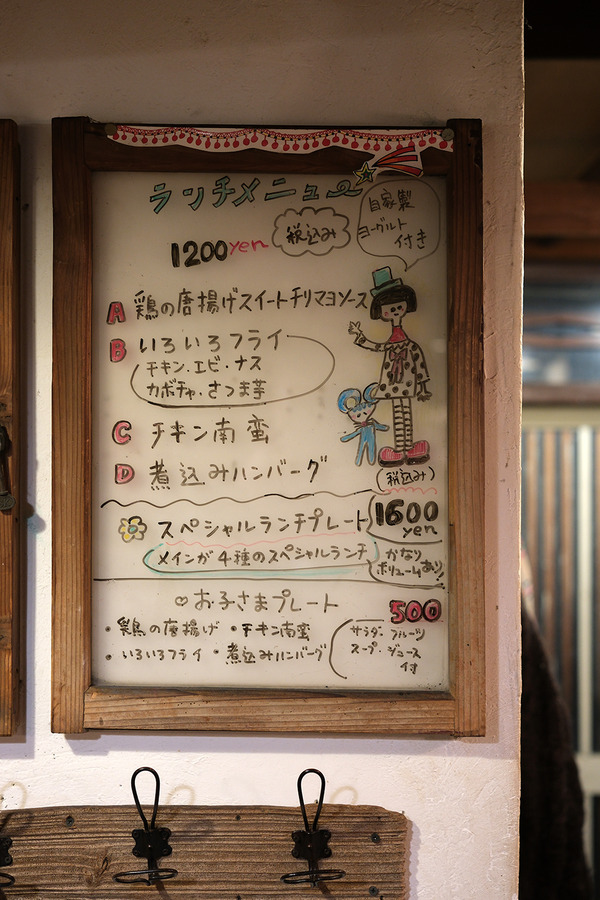 ランチメニュー
自家製
ヨーグルト
付き
1200yen
税込み
A 鶏の唐揚げスイートチリマヨソース
B いろいろフライ
チキン・エビ・ナス
カボチャ・さつま芋
C チキン南蛮
D 煮込みハンバーグ
(税込み)
スペシャルランチプレート
1600
yen
メインが4種のスペシャルランチ
かなり
ボリュームあり!
♡お子さまプレート
500
・鶏の唐揚げ ・チキン南蛮
・いろいろフライ ・煮込みハンバーグ
サラダ・フルーツ
スープ・ジュース
付